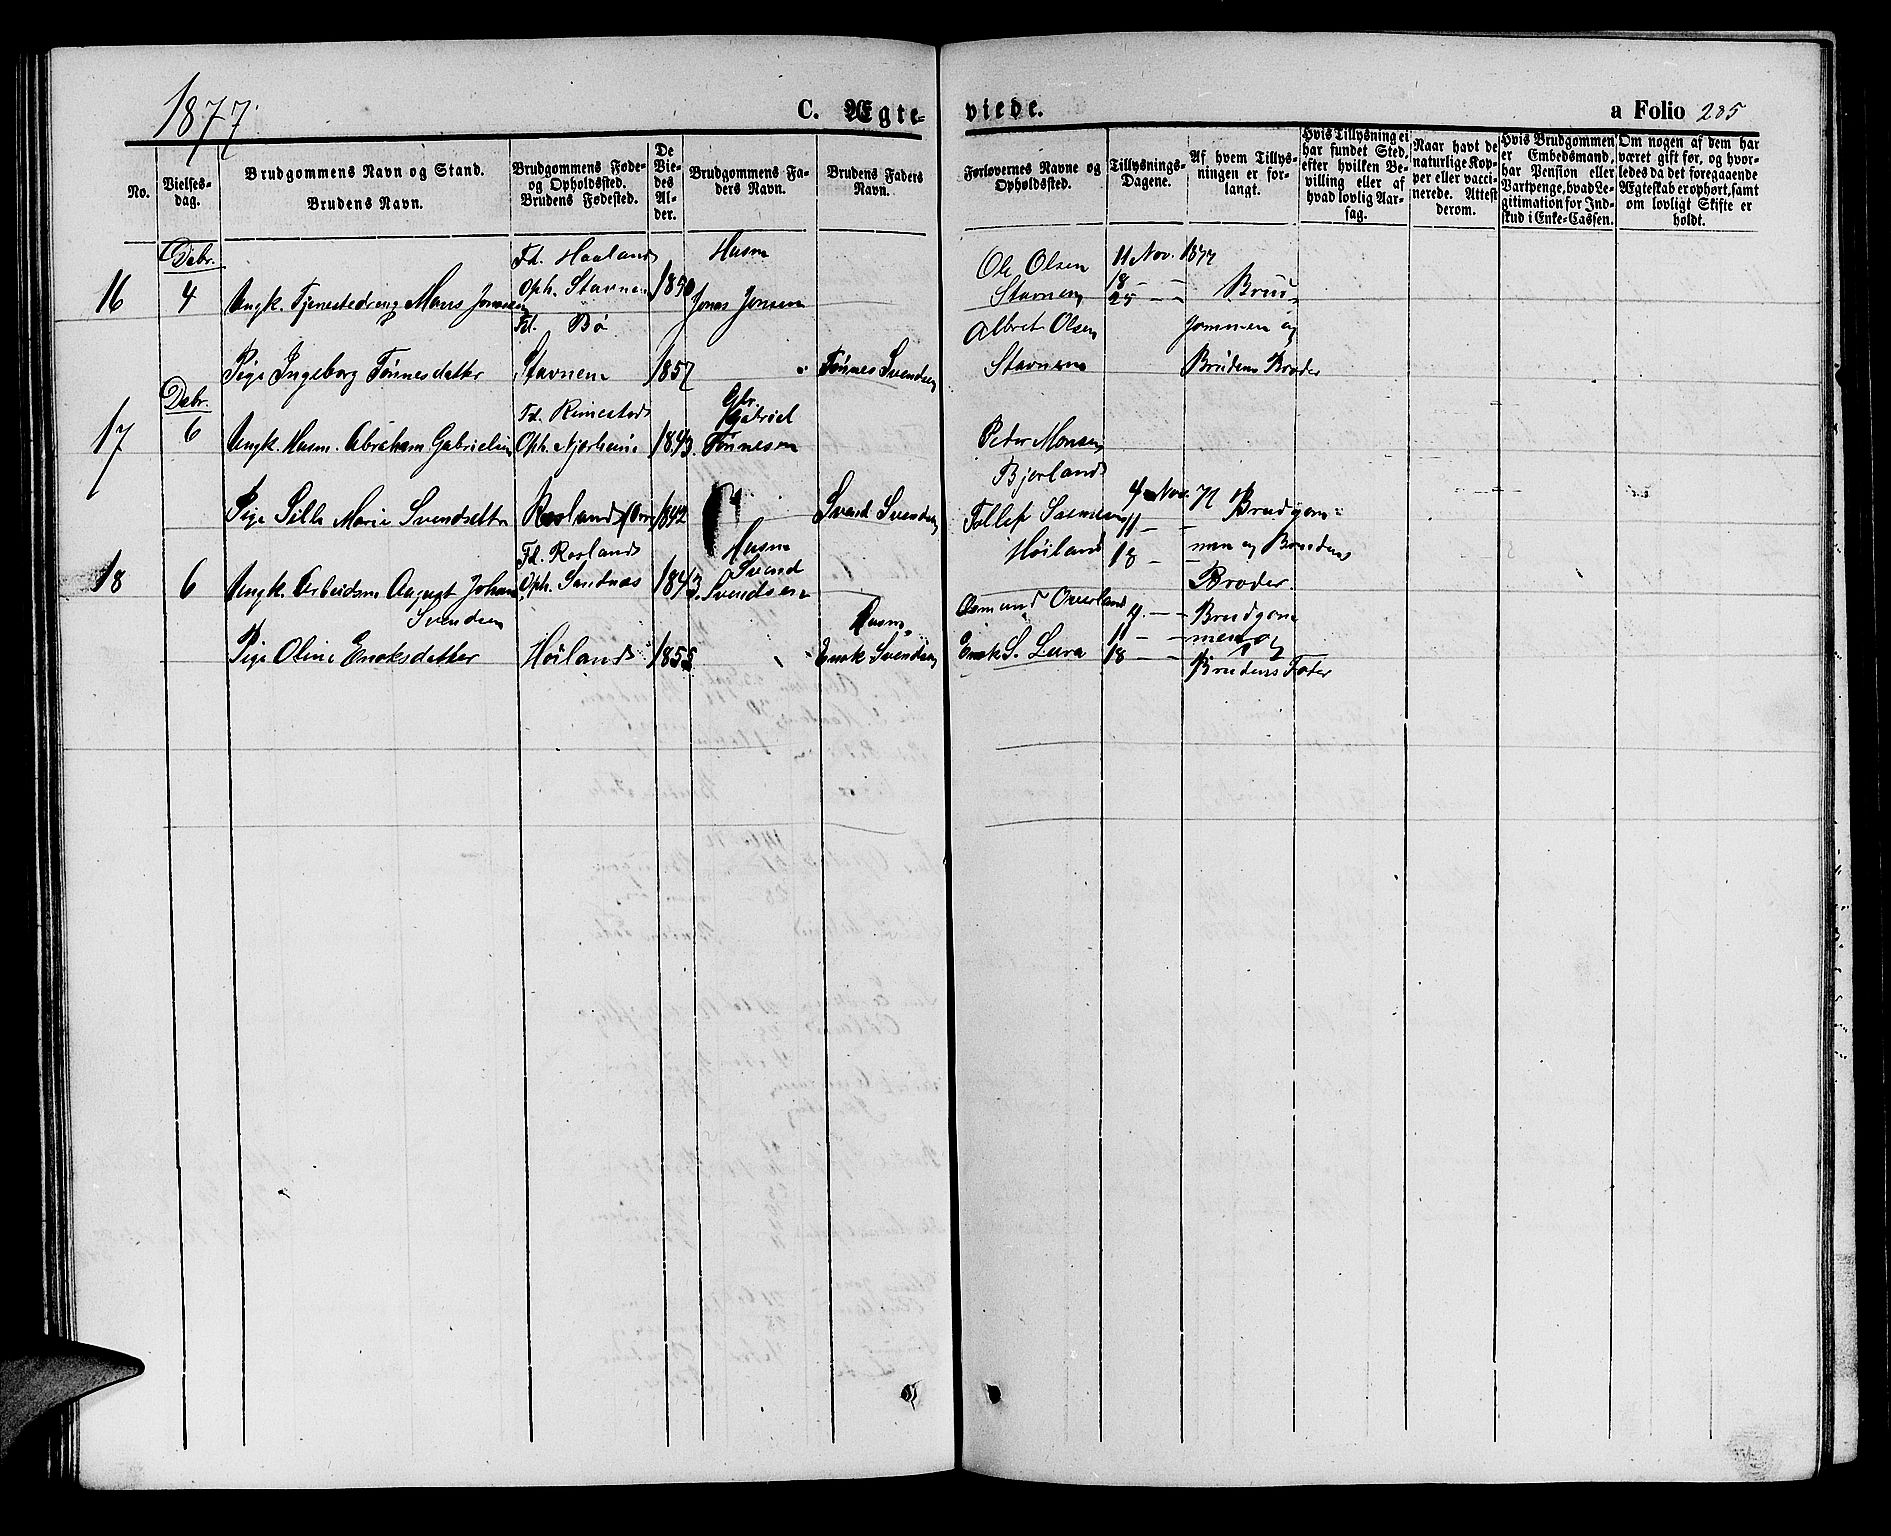 1877.
C. Ægte-
viede.
a Folio 285
No.
Vielses-
dag.
Brudgommens Navn og Stand.
Brudens Navn.
Brudgommens Føde-
og Opholdssted.
Brudens Fødested.
De
Vie-
des
Al-
der.
Brudgommens Fa-
ders Navn.
Brudens Faders
Navn.
Forlovernes Navne og
Opholdsted.
Tillysnings-
Dagene.
Af hvem Tillys-
ningen er for-
langt.
Hvis Tillysning ei
har fundet Sted,
efter hvilken Be-
villing eller af
hvad lovlig Aar-
sag.
Naar havt de
naturlige Kop-
per eller vacci-
nerede. Attest
derom.
Hvis Brudgommen
er Embedsmand,
har Pension eller
Vartpenge, hvad Le-
gitimation for Ind-
skud i Enke-Cassen.
Om nogen af dem har
været gift før, og hvor-
ledes da det foregaaende
Ægteskab er ophørt, samt
om lovligt Skifte er
holdt.
Debr.
16
4
Ungk. Tjenestedreng Mons Jonassen
Fd. Haaland
Oph. Stavnem
1850
Husm
Jonas Jonsen
Ole Olsen
Stavnem
11 Nov. 1877
18 - -
25 - -
Brud-
gommen og
Brudens Broder
Pige Ingeborg Tønnesdatter
Fd. Bø
Stavnem
1857
Tønnes Svendsen
Albret Olsen
Stavnem
Debr.
17
6
Ungk. Husm. Abraham Gabrielsen
Fd. Rimestad
Oph. Njærheim
1843
Gbr.
Gabriel
Tønnesen
Peder Monsen
Bjorland
Pige Sille Marie Svendsdttr
Roeland
1842
Svend Svendsen
Tollef
Høiland
4 Nov. 77
11 -
18 - -
Brudgom-
men og Brudens
Broder.
18
6
Ungk. Arbeidsm August Johan
Svendsen
Fd. Roeland
Oph. Sandnæs
1843
Husm
Svend
Svendsen
Osmund Overland
4 - -
11 - -
18 - -
Brudgom
men og
Brudens Fader
Pige Oline Enoksdatter
Høiland
1855
Husm.
Enok Svendsen
Enok S. Lura